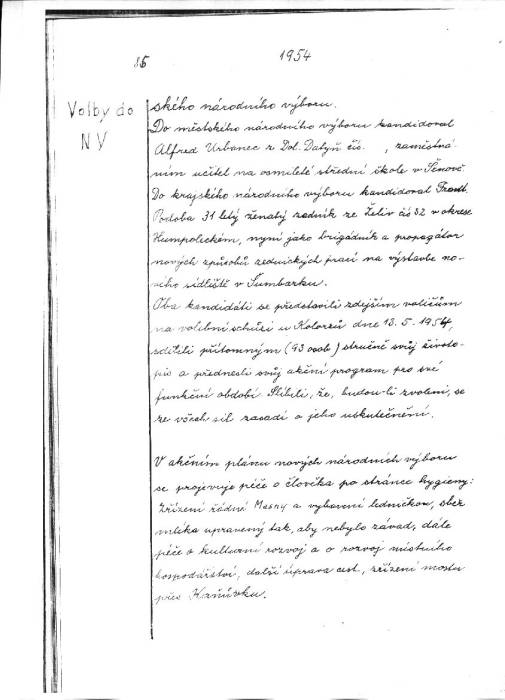 86
1954
Volby do
NV
ského národního výboru.
Do městského národního výboru kandidoval
Alfred Urbanec z Dol. Datyň čís. , zaměstná
ním učitel na osmileté střední škole v Šenově.
Do krajského národního výboru kandidoval Frant.
Podoba 31 letý ženatý zedník ze Želiv čís 32 v okrese
Humpoleckém, nyní jako brigádník a propagátor
nových způsobů zednických prací na výstavbě no-
vého sídliště v Šumbarku.
Oba kandidáti se představili zdejším voličům
na volební schůzi u Kolorzů dne 13.5.1954,
sdělili přítomným (93 osob) stručně svůj životo-
pis a přednesli svůj akční program pro své
funkční období Slíbili, že, budou-li zvoleni, se
ze všech sil zasadí o jeho uskutečnění.
V akčním plánu nových národních výborů
se projevuje péče o člověka po stránce hygieny:
Zřízení řádné Masny a vybavení ledničkou, sběr
mléka upravený tak, aby nebylo závad, dále
péče o kulturní rozvoj a o rozvoj místního
hospodářství, další úprava cest, zřízení mostu
přes Kaňůvku.